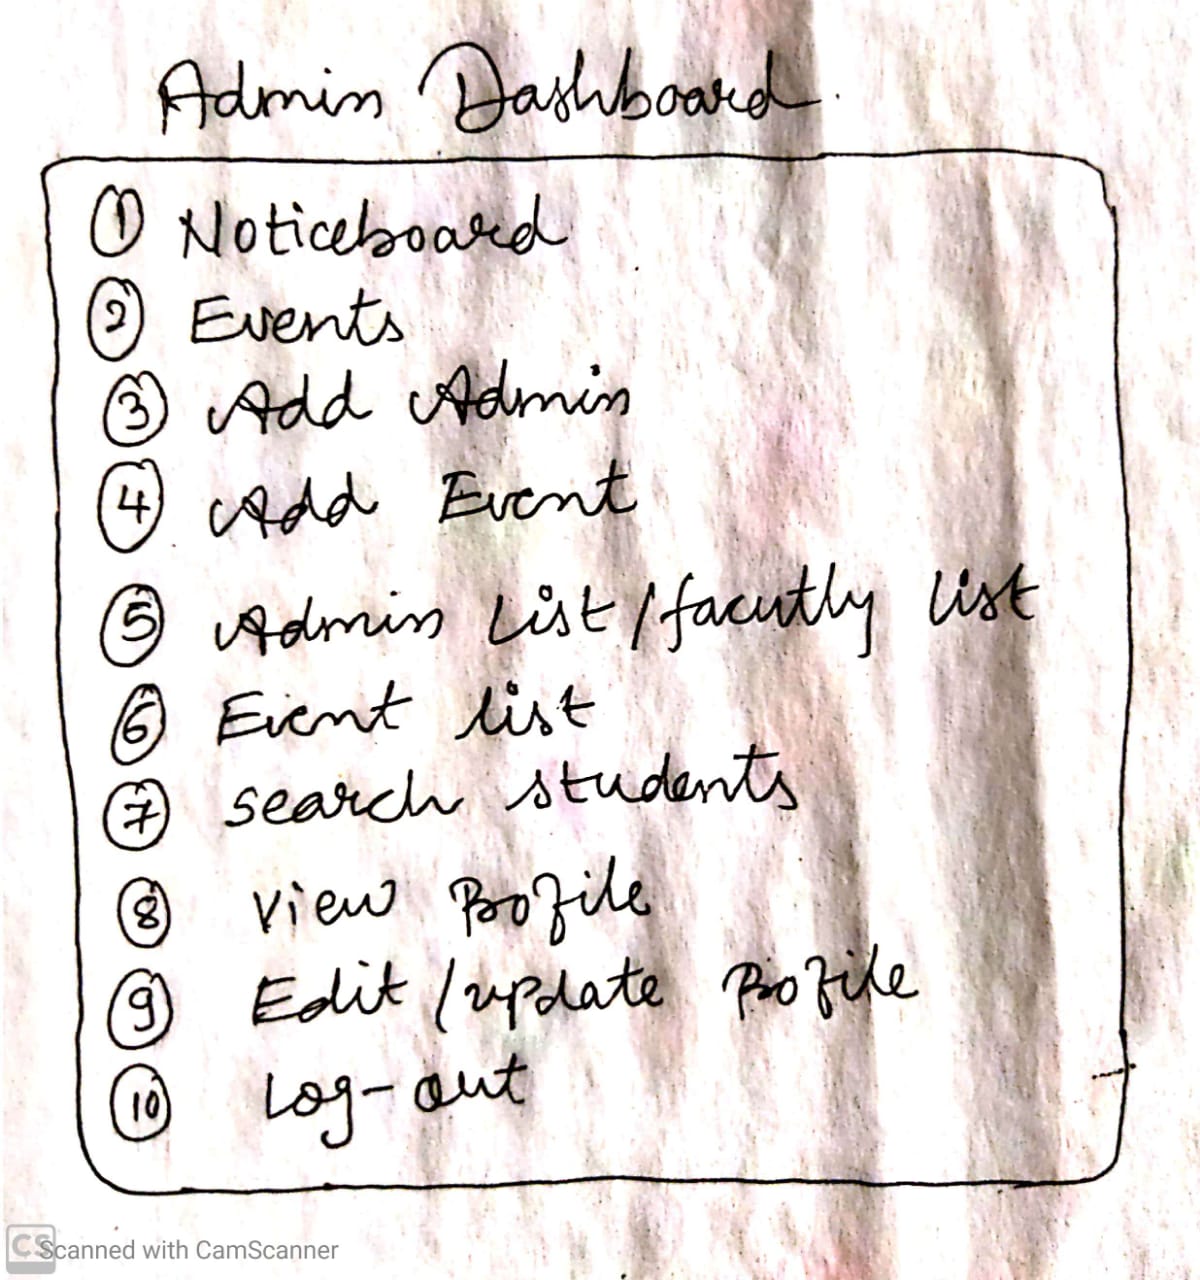 Admin Dashboard.
① Noticeboard
② Events
③ Add Admin
④ Add Event
⑤ Admin List/facutly list
⑥ Event list
⑦ search students
⑧ View Profile
⑨ Edit/update Profile
⑩ Log-out
CS Scanned with CamScanner